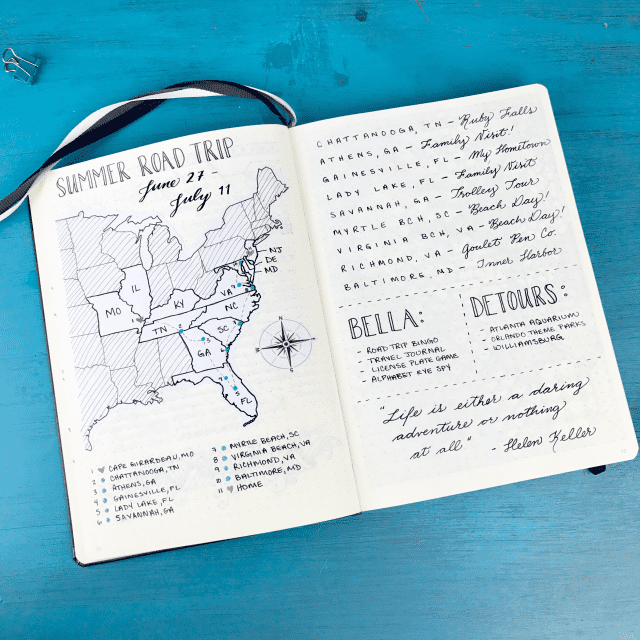 SUMMER ROAD TRIP
June 27 -
July 11
NJ
DE
MD
IL
MO
KY
VA
TN
NC
SC
GA
FL
N
E
S
W
1 CAPE GIRARDEAU, MO
2 CHATTANOOGA, TN
3 ATHENS, GA
4 GAINESVILLE, FL
5 LADY LAKE, FL
6 SAVANNAH, GA
8 MYRTLE BEACH, SC
9 VIRGINIA BEACH, VA
9 RICHMOND, VA
10 BALTIMORE, MD
11 HOME
CHATTANOOGA, TN - Ruby Falls
ATHENS, GA - Family Visit!
GAINESVILLE, FL - My Hometown
LADY LAKE, FL - Family Visit
SAVANNAH, GA - Trolley Tour
MYRTLE BCH, SC - Beach Day!
VIRGINIA BCH, VA - Beach Day!
RICHMOND, VA - Goulet Pen Co.
BALTIMORE, MD - Inner Harbor
BELLA:
- ROAD TRIP BINGO
- TRAVEL JOURNAL
- LICENSE PLATE GAME
- ALPHABET EYE SPY
DETOURS:
- ATLANTA AQUARIUM
- ORLANDO THEME PARKS
- WILLIAMSBURG
"Life is either a daring
adventure or nothing
at all" - Helen Keller